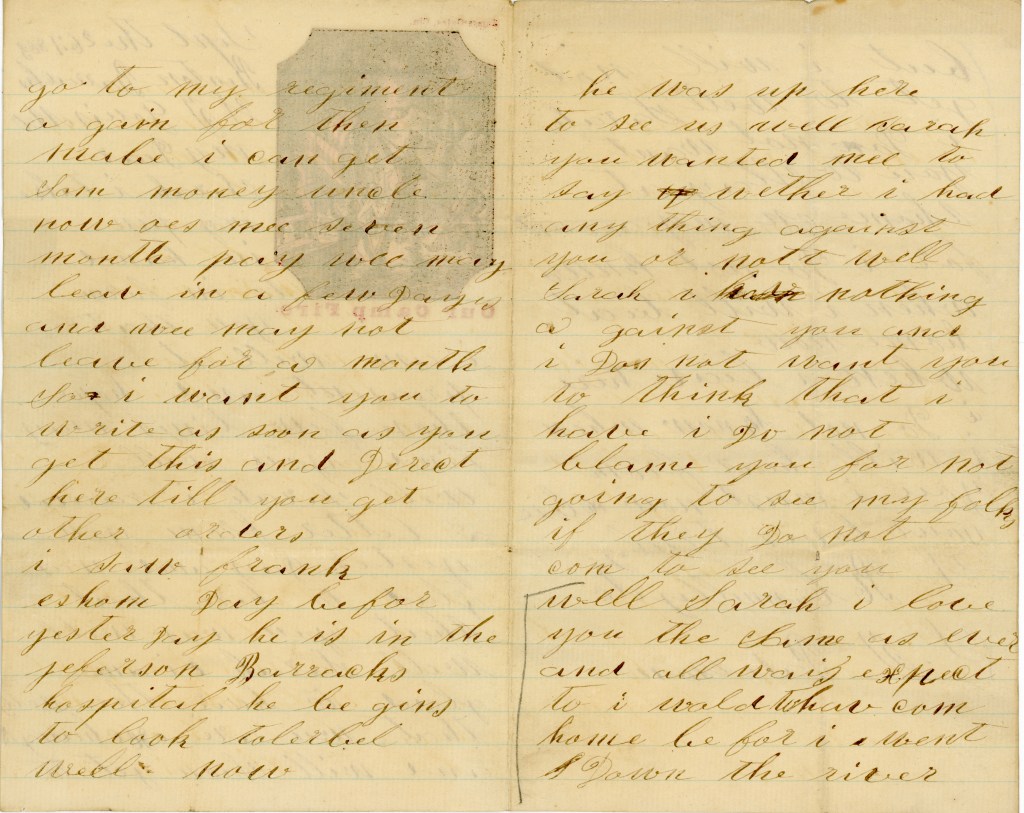 go to my regiment
a gain for then
mabe i can get
som money uncle
now oes mee seven
month pay wee may
leav in a few Days
and wee may not
leave for a month
So i want you to
write as soon as you
get this and Direct
here till you get
other orders
i saw frank
eshom Day befor
yester Day he is in the
jeferson Barracks
hospital he be gins
to look tolerbel
well now
Our Camp Fire
he was up here
to see us well Sarah
you wanted mee to
say wether i had
any thing against
you or nott well
Sarah i nothing
a gainst you and
i Do not want you
to think that i
have i Do not
blame you for not
going to see my folks
if they Do not
com to see you
well Sarah i love
you the Same as ever
and all wais expect
to i wold hav com
home be for i went
Down the river